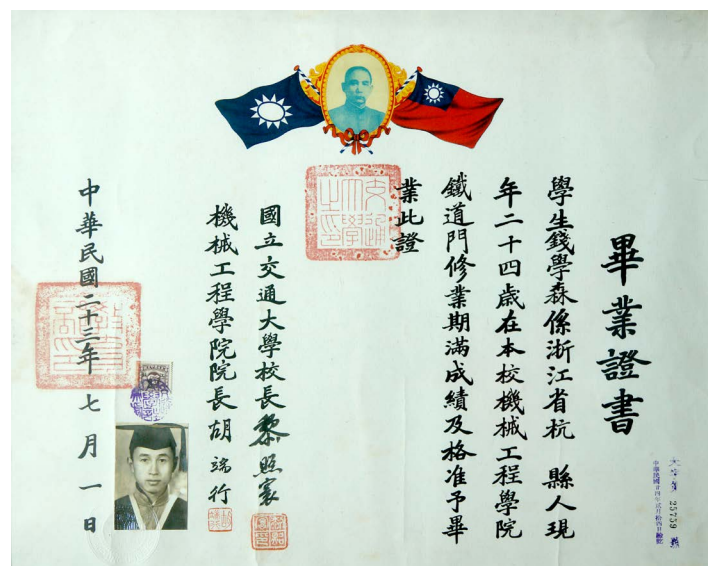 畢業證書
學生錢學森係浙江省杭 縣人現
年二十四歲在本校機械工程學院
鐵道門修業期滿成績及格准予畢
業此證
國立交通大學校長黎照寰
機械工程學院院長胡端行
中華民國二十三年 七月一日
交通大學之印
大字第 25759 號